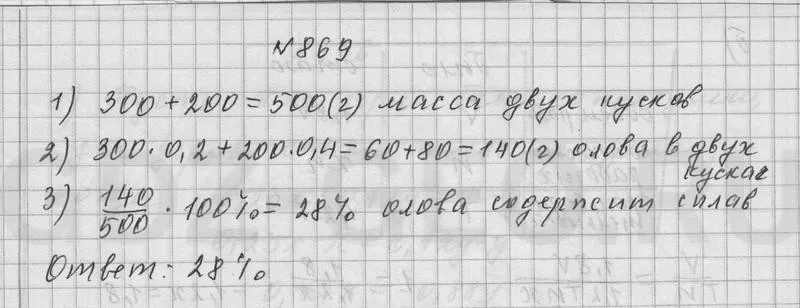 №869
1) 300 + 200 = 500(г) масса двух кусков
2) 300·0,2 + 200·0,4 = 60 + 80 = 140(г) олова в двух
кусках
3) 140/500 · 100% = 28% олова содержит сплав
Ответ: 28%